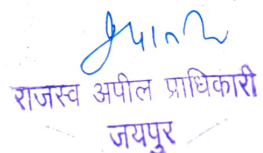 राजस्व अपील प्राधिकारी
जयपुर